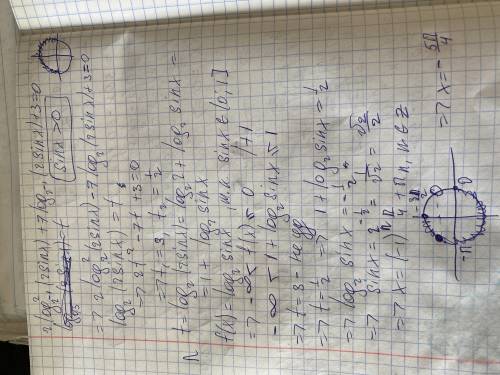 2log₂²(2sinx)+7log₂₋₁(2sinx)+3=0
sinx>0
=> 2log₂²(2sinx)-7log₂(2sinx)+3=0
log₂(2sinx)=t
=> 2t²-7t+3=0
=> t₁=3, t₂=1/2
t=log₂(2sinx)=log₂2+log₂sinx=
=1+log₂sinx
f(x)=log₂sinx, т.к. sinx∈(0;1]
=> -∞<f(x)≤0 |+1
-∞<1+log₂sinx≤1
=> t=3-
=> t=1/2 => 1+log₂sinx=1/2
=> log₂sinx=-1/2
=> sinx=2^(-1/2)=1/√2=√2/2
=> x=(-1)ⁿ π/4+πn, n∈Z
-3π/2
0
-π
=> x=-5π/4